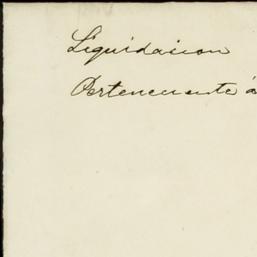 Liquidacion
Perteneciente á